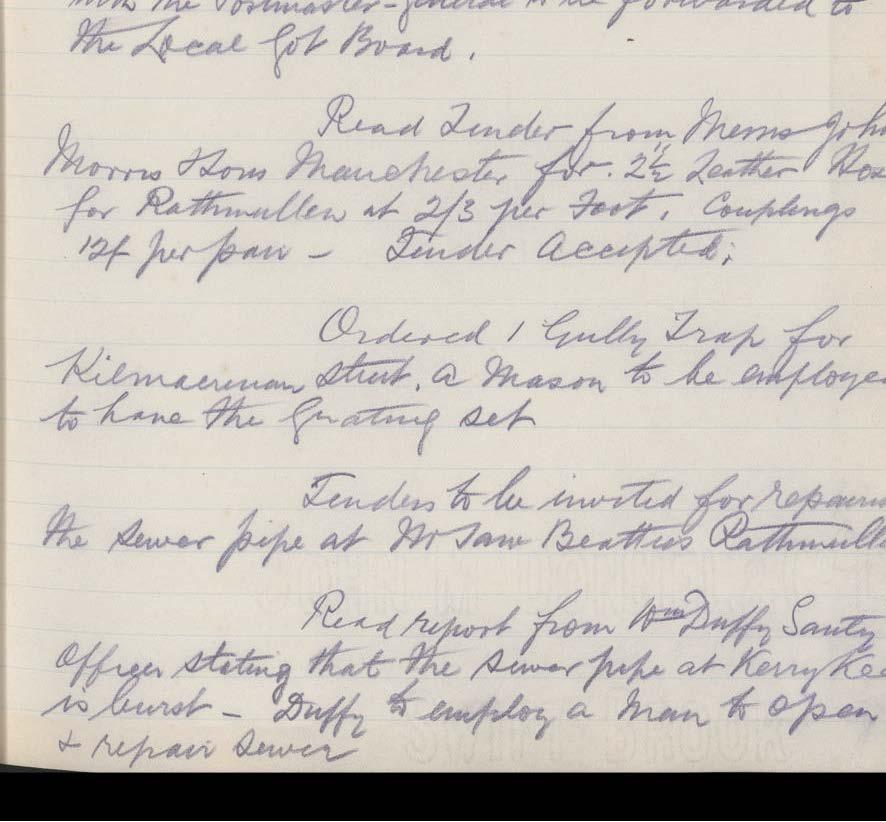 with the Postmaster-General to be forwarded to
the Local Govt Board.
Read Tender from Messrs John
Morris & Sons Manchester for 2½" Leather Hos
for Rathmullen at 2/3 per Foot. Couplings
12/ per pair – Tender Accepted;
Ordered 1 Gully Trap for
Kilmacrenan Street. a Mason to be employe
to have the Grating set
Tenders to be invited for repairin
the sewer pipe at Beatties Rathmulle
Read report from Wm Duffy Santy
Officer stating that the sewer pipe at Kerrykee
is burst – Duffy to employ a man to open
& repair sewer